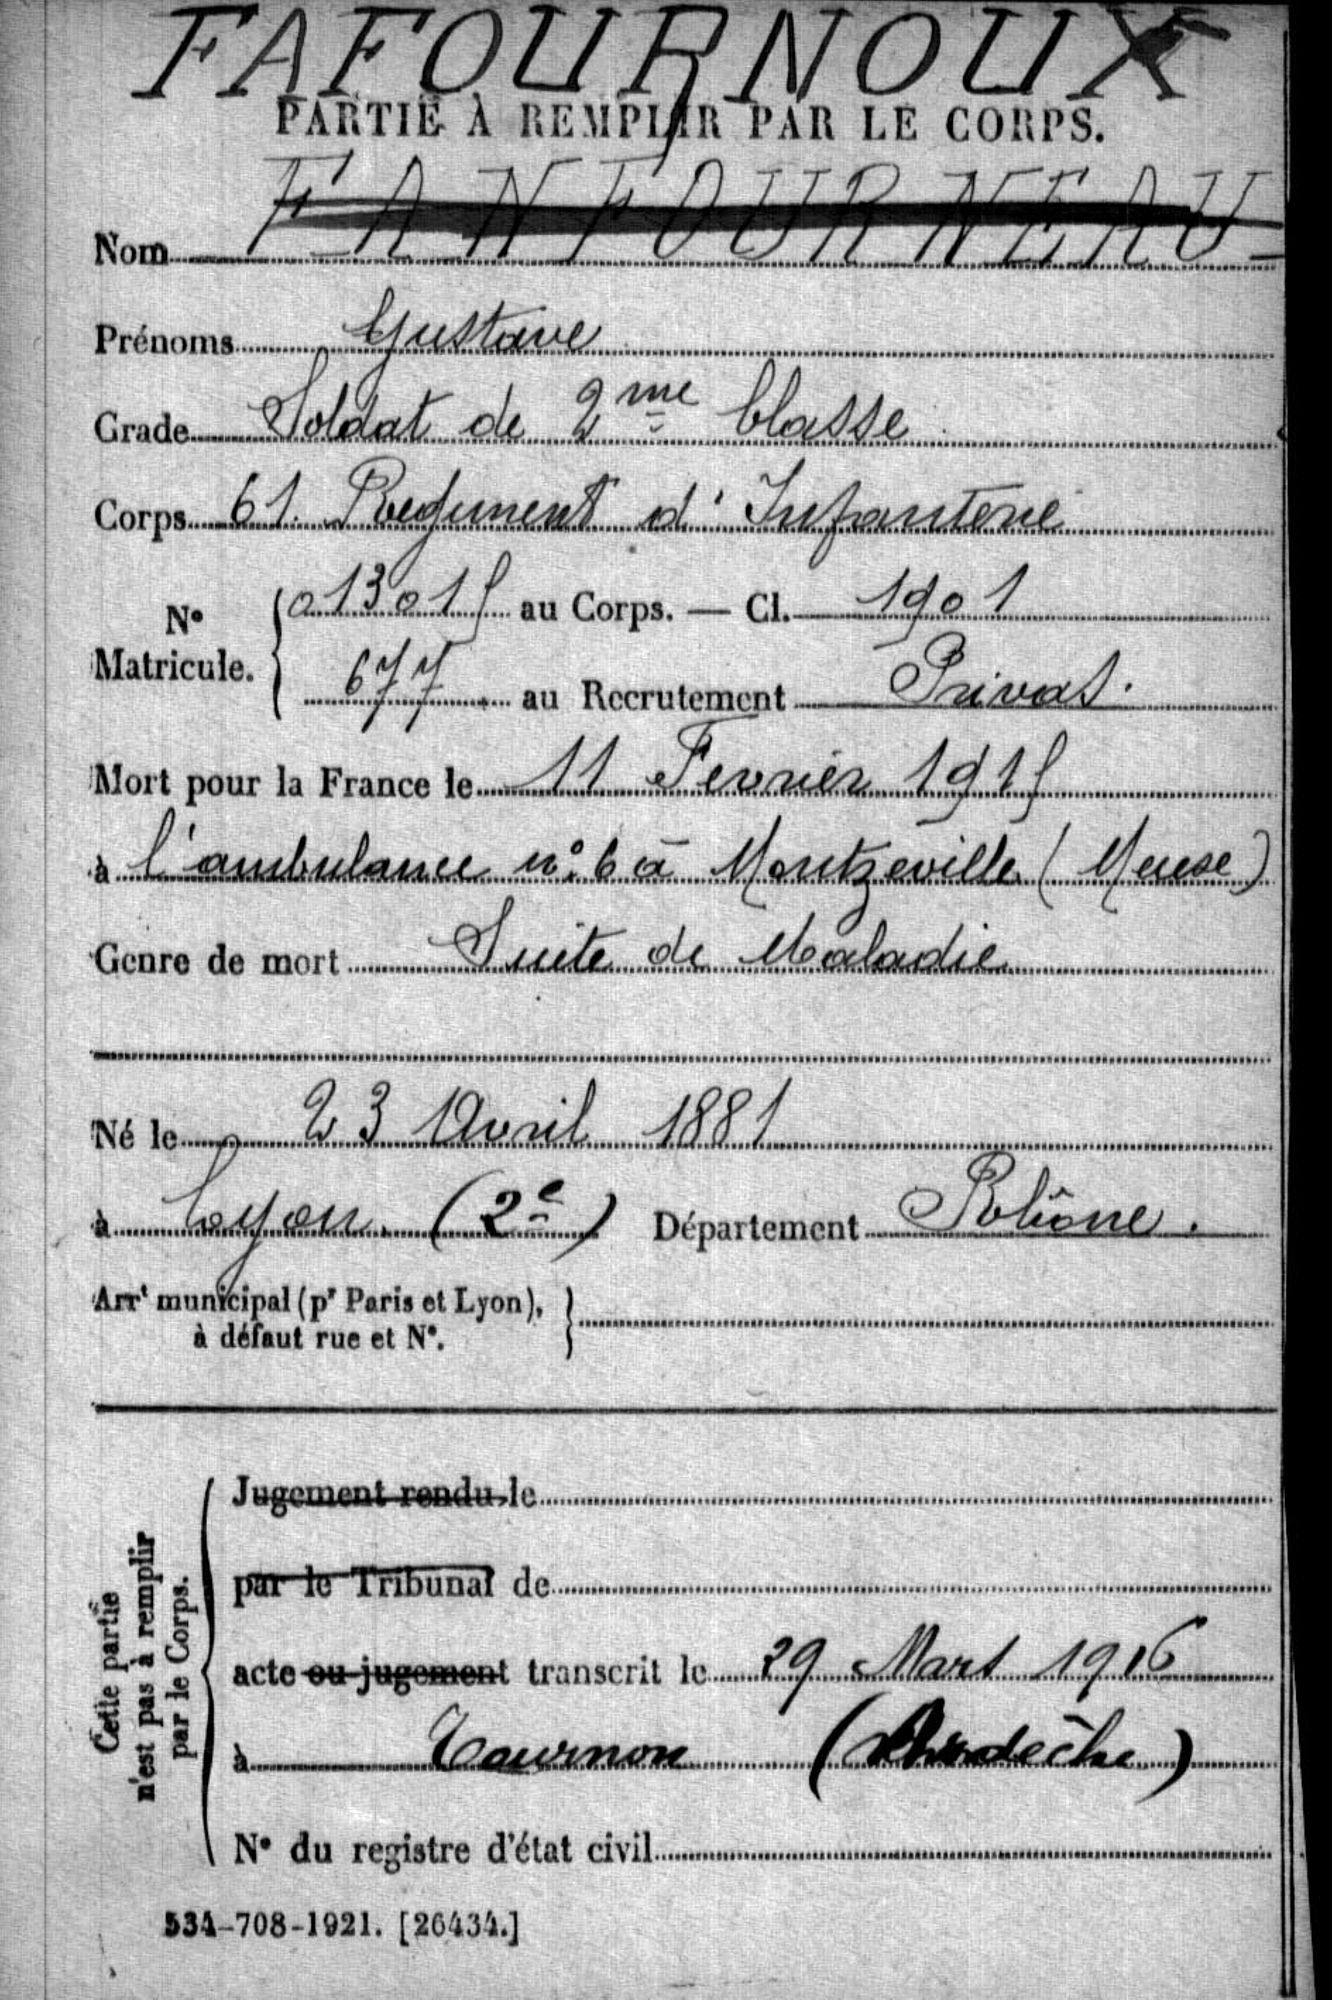 FAFOURNOUX
PARTIE À REMPLIR PAR LE CORPS.
Nom FANFOURNEAU
Prénoms Gustave
Grade Soldat de 2me Classe
Corps 61. Regiment d'Infanterie
No Matricule. { 013015 au Corps. — Cl. 1901
677 au Recrutement Privas.
Mort pour la France le 11 Fevrier 1915
à l'ambulance no. 6 à Montzeville (Meuse)
Genre de mort Suite de Maladie
Né le 23 Avril 1881
à Lyon. (2e) Département Rhône.
Arrt municipal (pr Paris et Lyon), à défaut rue et No. }
Cette partie n'est pas à remplir par le Corps. {
Jugement rendu le
par le Tribunal de
acte ou jugement transcrit le 29 Mars 1916
à Tournon (Ardèche)
No du registre d'état civil
534-708-1921. [26434.]